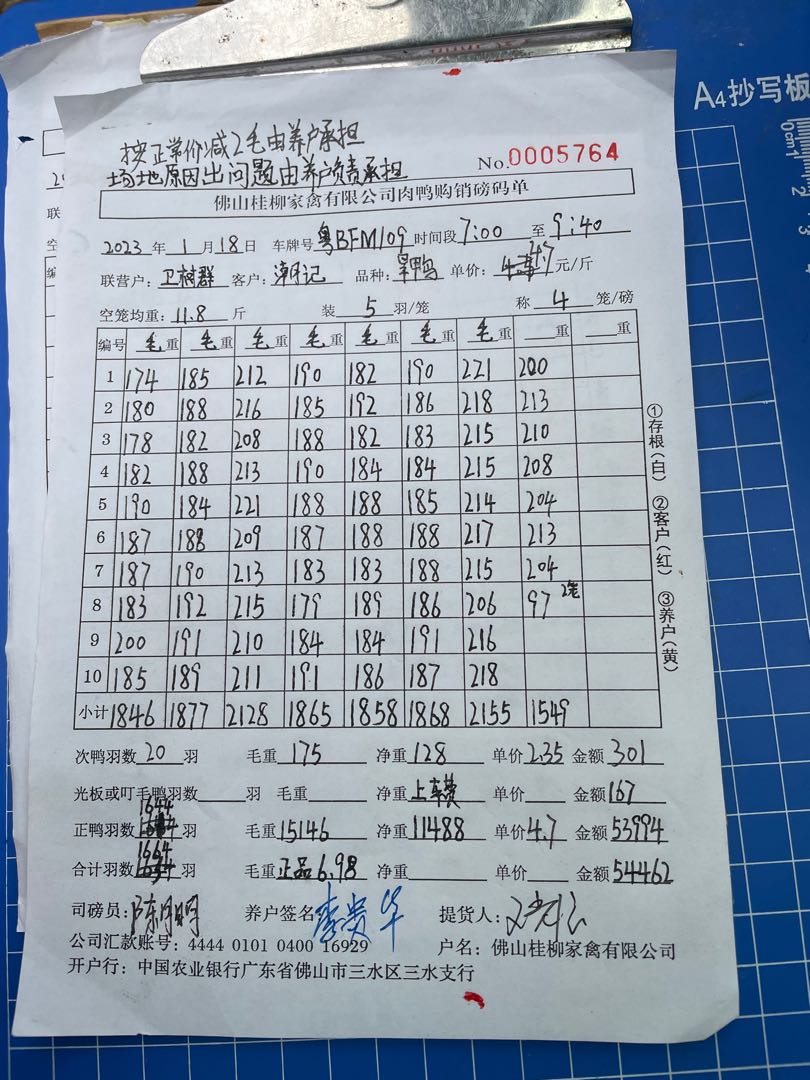 A4抄写板
0 1cm 2 3
按正常价减2毛由养户承担
场地原因出问题由养户负责承担
No.0005764
佛山桂柳家禽有限公司肉鸭购销磅码单
2023年1月18日 车牌号粤BFM109时间段7:00至9:40
联营户:卫树群 客户:潮记 品种:旱鸭 单价:4.7元/斤
空笼均重:11.8斤 装5羽/笼 称4笼/磅
编号 毛重 毛重 毛重 毛重 毛重 毛重 毛重 重 重
1 174 185 212 190 182 190 221 200
2 180 188 216 185 192 186 218 213
3 178 182 208 188 182 183 215 210
4 182 188 213 190 184 184 215 208
5 190 184 221 188 188 185 214 204
6 187 188 209 187 188 188 217 213
7 187 190 213 183 183 188 215 204
8 183 192 215 179 189 186 206 97 2笼
9 200 191 210 184 184 191 216
10 185 189 211 191 186 187 218
小计 1846 1877 2128 1865 1858 1868 2155 1549
①存根(白) ②客户(红) ③养户(黄)
次鸭羽数20羽 毛重175 净重128 单价2.35 金额301
光板或叮毛鸭羽数 羽 毛重 净重上车费 单价 金额167
正鸭羽数1644羽 毛重15146 净重11488 单价4.7 金额53994
合计羽数1664羽 毛重正品6.98 净重 单价 金额54462
司磅员:陈明 养户签名李贵华 提货人:
公司汇款账号:4444 0101 0400 16929 户名:佛山桂柳家禽有限公司
开户行:中国农业银行广东省佛山市三水区三水支行